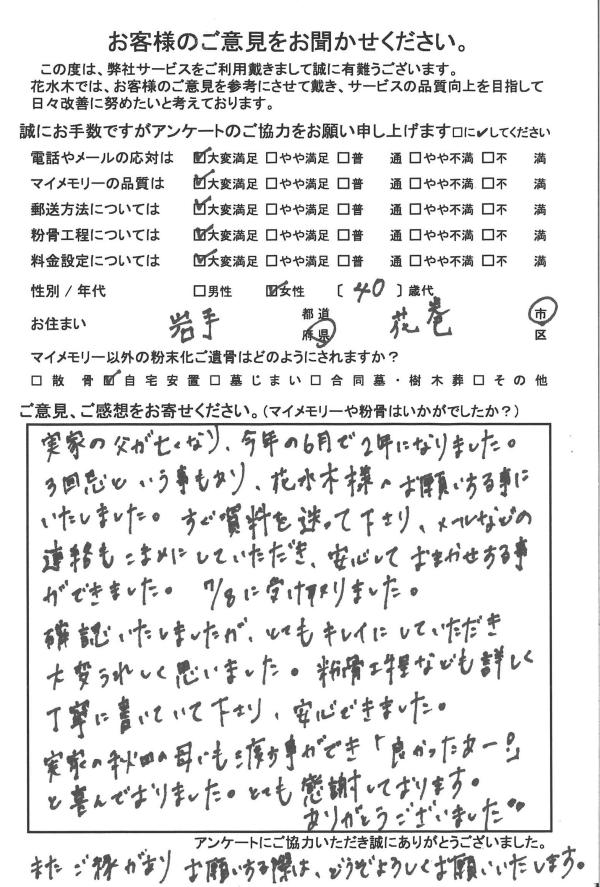 お客様のご意見をお聞かせください。
この度は、弊社サービスをご利用戴きまして誠に有難うございます。
花水木では、お客様のご意見を参考にさせて戴き、サービスの品質向上を目指して
日々改善に努めたいと考えております。
誠にお手数ですがアンケートのご協力をお願い申し上げます□に✔してください
電話やメールの応対は ☑大変満足 □やや満足 □普 通 □やや不満 □不 満
マイメモリーの品質は ☑大変満足 □やや満足 □普 通 □やや不満 □不 満
郵送方法については ☑大変満足 □やや満足 □普 通 □やや不満 □不 満
粉骨工程については ☑大変満足 □やや満足 □普 通 □やや不満 □不 満
料金設定については ☑大変満足 □やや満足 □普 通 □やや不満 □不 満
性別 / 年代 □男性 ☑女性 〔 40 〕歳代
お住まい 岩手 都道府県 花巻 市区
マイメモリー以外の粉末化ご遺骨はどのようにされますか？
□散 骨 ☑自宅安置 □墓じまい □合同墓・樹木葬 □その他
ご意見、ご感想をお寄せください。(マイメモリーや粉骨はいかがでしたか？)
実家の父が亡くなり、今年の6月で2年になりました。
3回忌という事もあり、花水木様へお願いする事に
いたしました。すぐ資料を送って下さり、メールなどの
連絡もこまめにしていただき、安心しておまかせする事
ができました。7/8に受け取りました。
確認いたしましたが、とてもキレイにしていただき
大変うれしく思いました。粉骨工程なども詳しく
丁寧に書いていて下さり、安心できました。
実家の秋田の母にも渡す事ができ「良かったぁー!」
と喜んでおりました。とても感謝しております。
ありがとうございました
アンケートにご協力いただき誠にありがとうございました。
またご縁がありお願いする際は、どうぞよろしくお願いいたします。